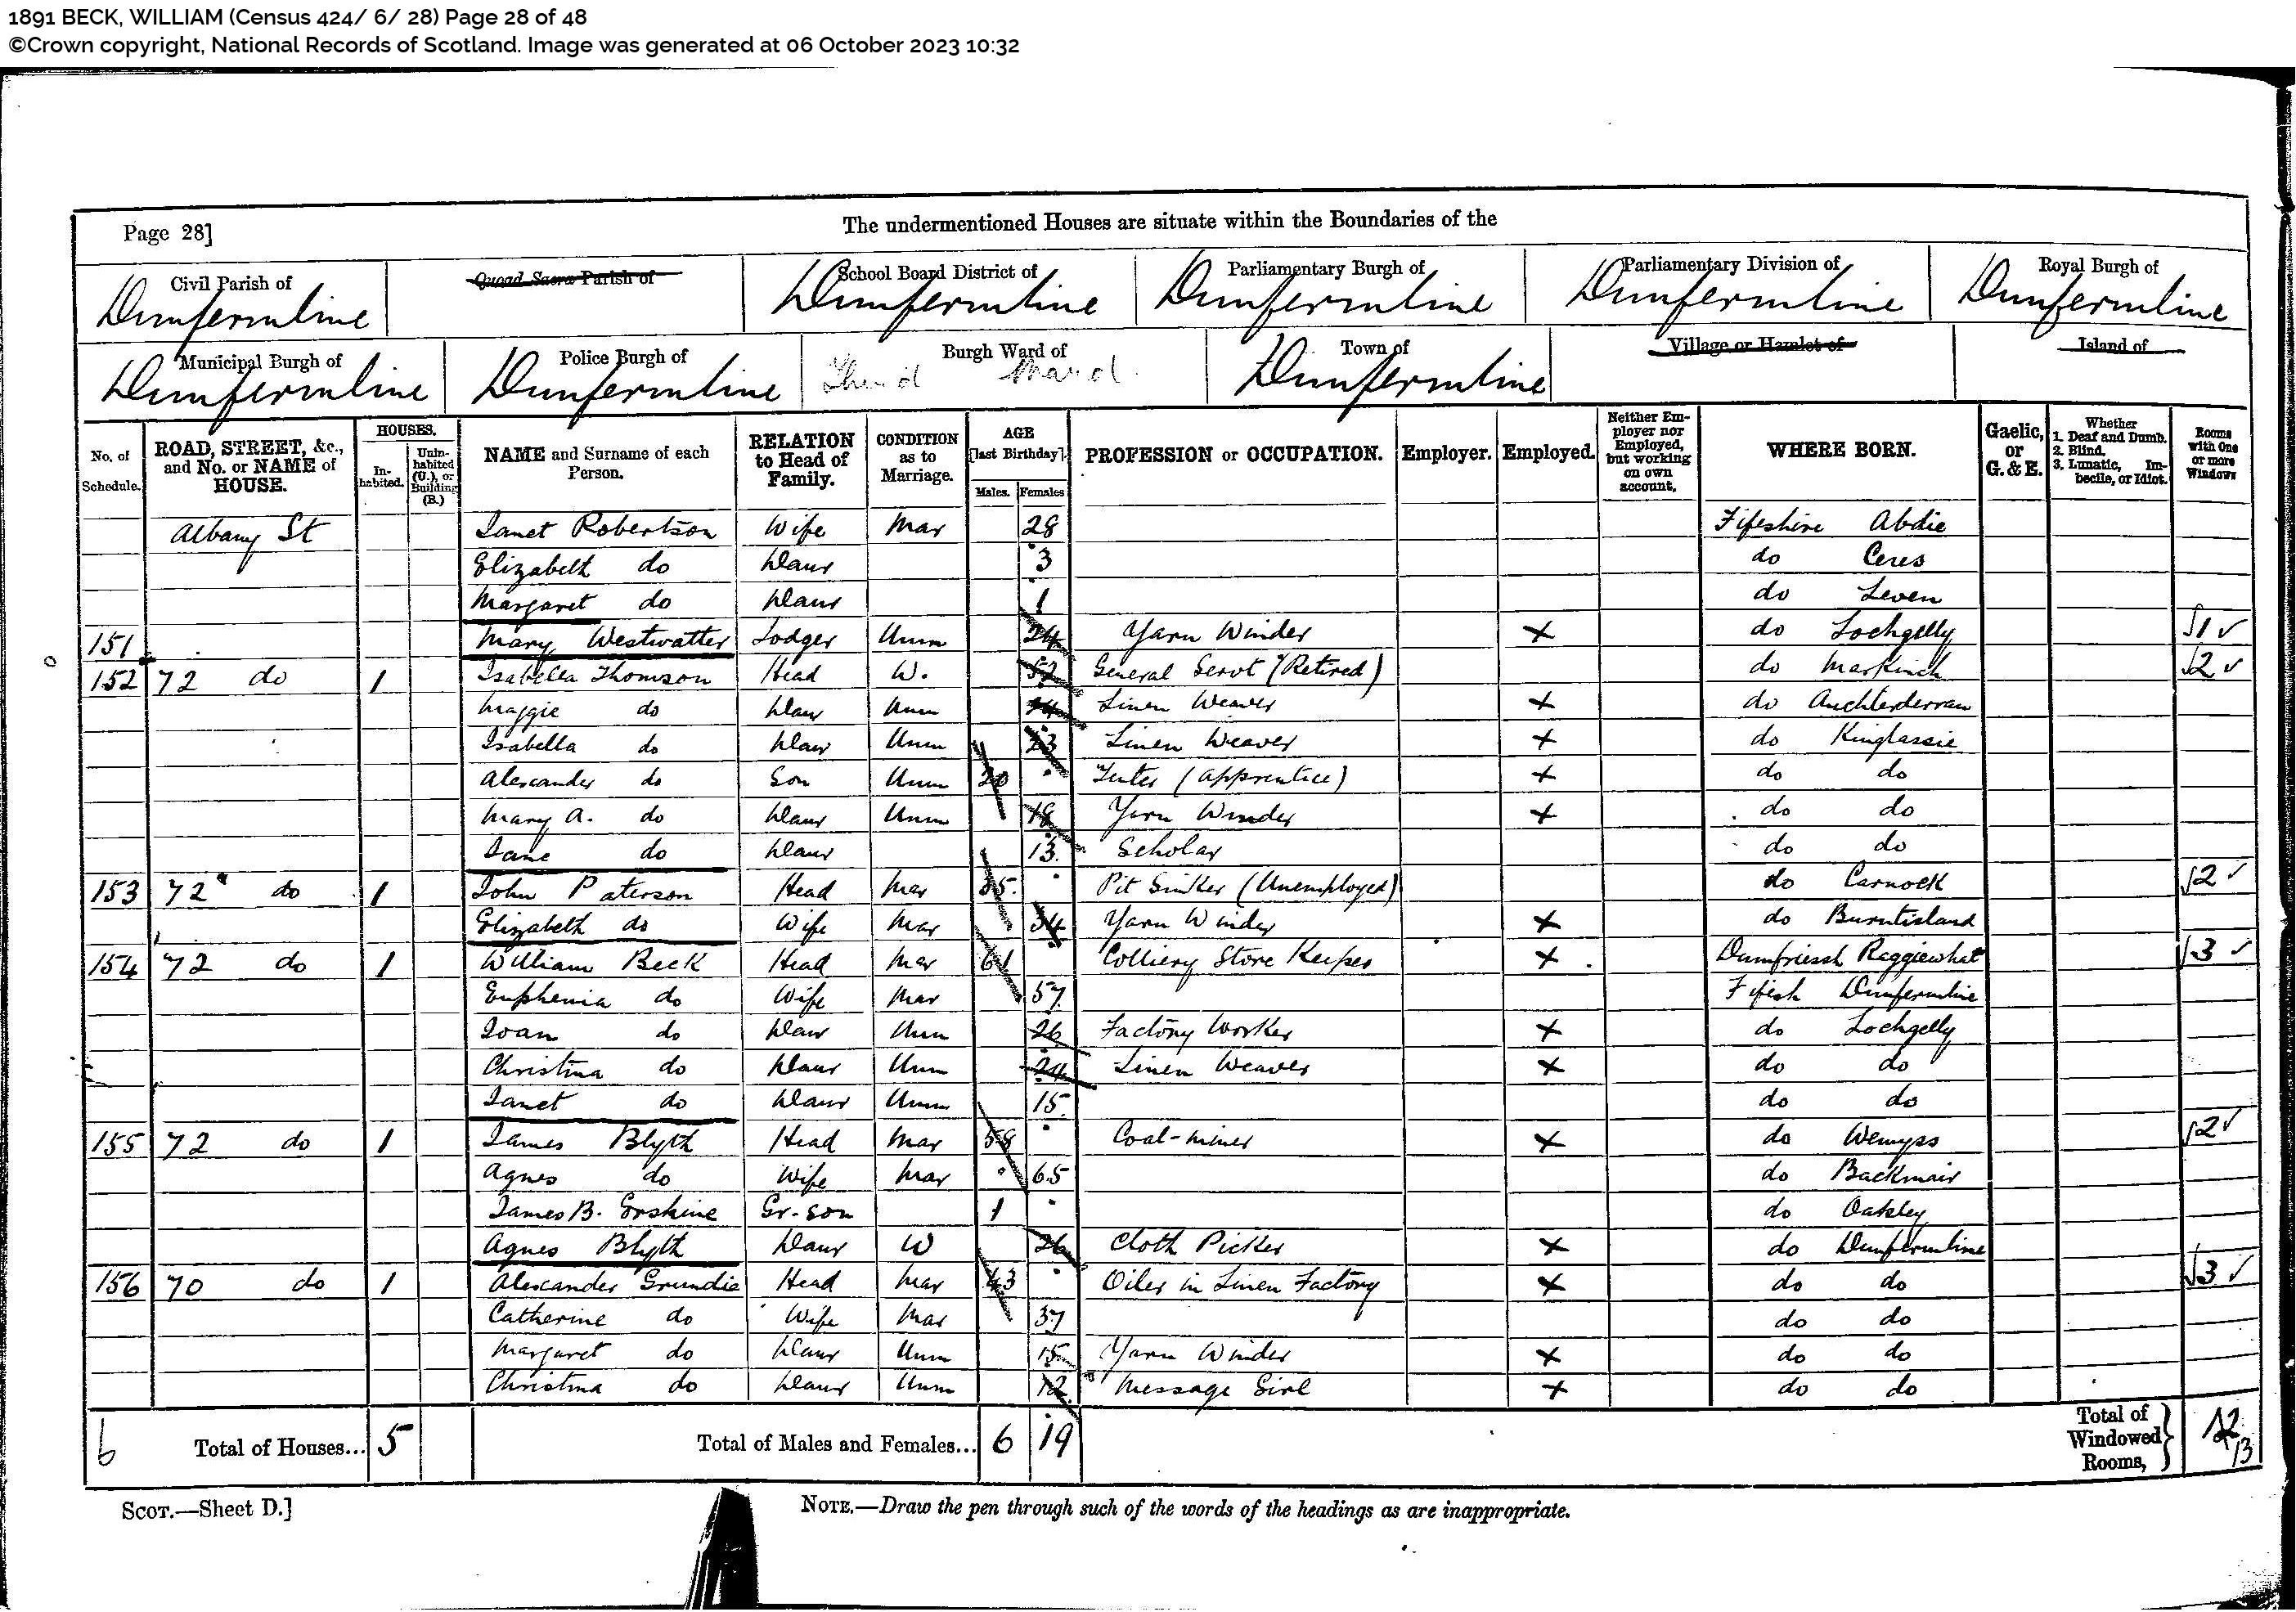 1891 BECK, WILLIAM (Census 424/ 6/ 28) Page 28 of 48
©Crown copyright, National Records of Scotland. Image was generated at 06 October 2023 10:32
Page 28] The undermentioned Houses are situate within the Boundaries of the
Civil Parish of Quoad Sacra Parish of School Board District of Parliamentary Burgh of Parliamentary Division of Royal Burgh of
Dunfermline Dunfermline Dunfermline Dunfermline Dunfermline
Municipal Burgh of Police Burgh of Burgh Ward of Town of Village or Hamlet of Island of
Dunfermline Dunfermline Third Ward Dunfermline
No. of Schedule. ROAD, STREET, &c., and No. or NAME of HOUSE. HOUSES. Inhabited. Uninhabited (U.), or Building (B.) NAME and Surname of each Person. RELATION to Head of Family. CONDITION as to Marriage. AGE [last Birthday]. Males. Females PROFESSION or OCCUPATION. Employer. Employed. Neither Employer nor Employed, but working on own account. WHERE BORN. Gaelic, or G. & E. Whether 1. Deaf and Dumb. 2. Blind. 3. Lunatic, Imbecile, or Idiot. Rooms with One or more Windows
Albany St Janet Robertson Wife Mar 28 Fifeshire Abdie
Elizabeth do Daur 3 do Ceres
Margaret do Daur 1 do Leven
151 Mary Westwatter Lodger Unm 24 Yarn Winder X do Lochgelly 1
152 72 do 1 Isabella Thomson Head W. 52 General Servt (Retired) do Markinch 2
Maggie do Daur Unm Linen Weaver X do Auchterderran
Isabella do Daur Unm 23 Linen Weaver X do Kinglassie
Alexander do Son Unm 20 Tenter (Apprentice) X do do
Mary A. do Daur Unm 18 Yarn Winder X do do
Jane do Daur 13 Scholar do do
153 72 do 1 John Paterson Head Mar 35 Pit Sinker (Unemployed) do Carnock 2
Elizabeth do Wife Mar 34 Yarn Winder X do Burntisland
154 72 do 1 William Beck Head Mar 61 Colliery Store Keeper X Dumfriessh Raggiewhat 3
Euphemia do Wife Mar 57 Fifesh Dunfermline
Joan do Daur Unm 26 Factory Worker X do Lochgelly
Christina do Daur Unm 24 Linen Weaver X do do
Janet do Daur Unm 15 do do
155 72 do 1 James Blyth Head Mar 58 Coal-miner X do Wemyss 2
Agnes do Wife Mar 65 do Backmuir
James B. Erskine Gr-son 1 do Oakley
Agnes Blyth Daur W 26 Cloth Picker X do Dunfermline
156 70 do 1 Alexander Grundie Head Mar 43 Oiler in Linen Factory X do do 3
Catherine do Wife Mar 37 do do
Margaret do Daur Unm 15 Yarn Winder X do do
Christina do Daur Unm 12 Message Girl X do do
6 Total of Houses... 5 Total of Males and Females... 6 19 Total of Windowed Rooms, 12 13
SCOT.—Sheet D.] NOTE.—Draw the pen through such of the words of the headings as are inappropriate.